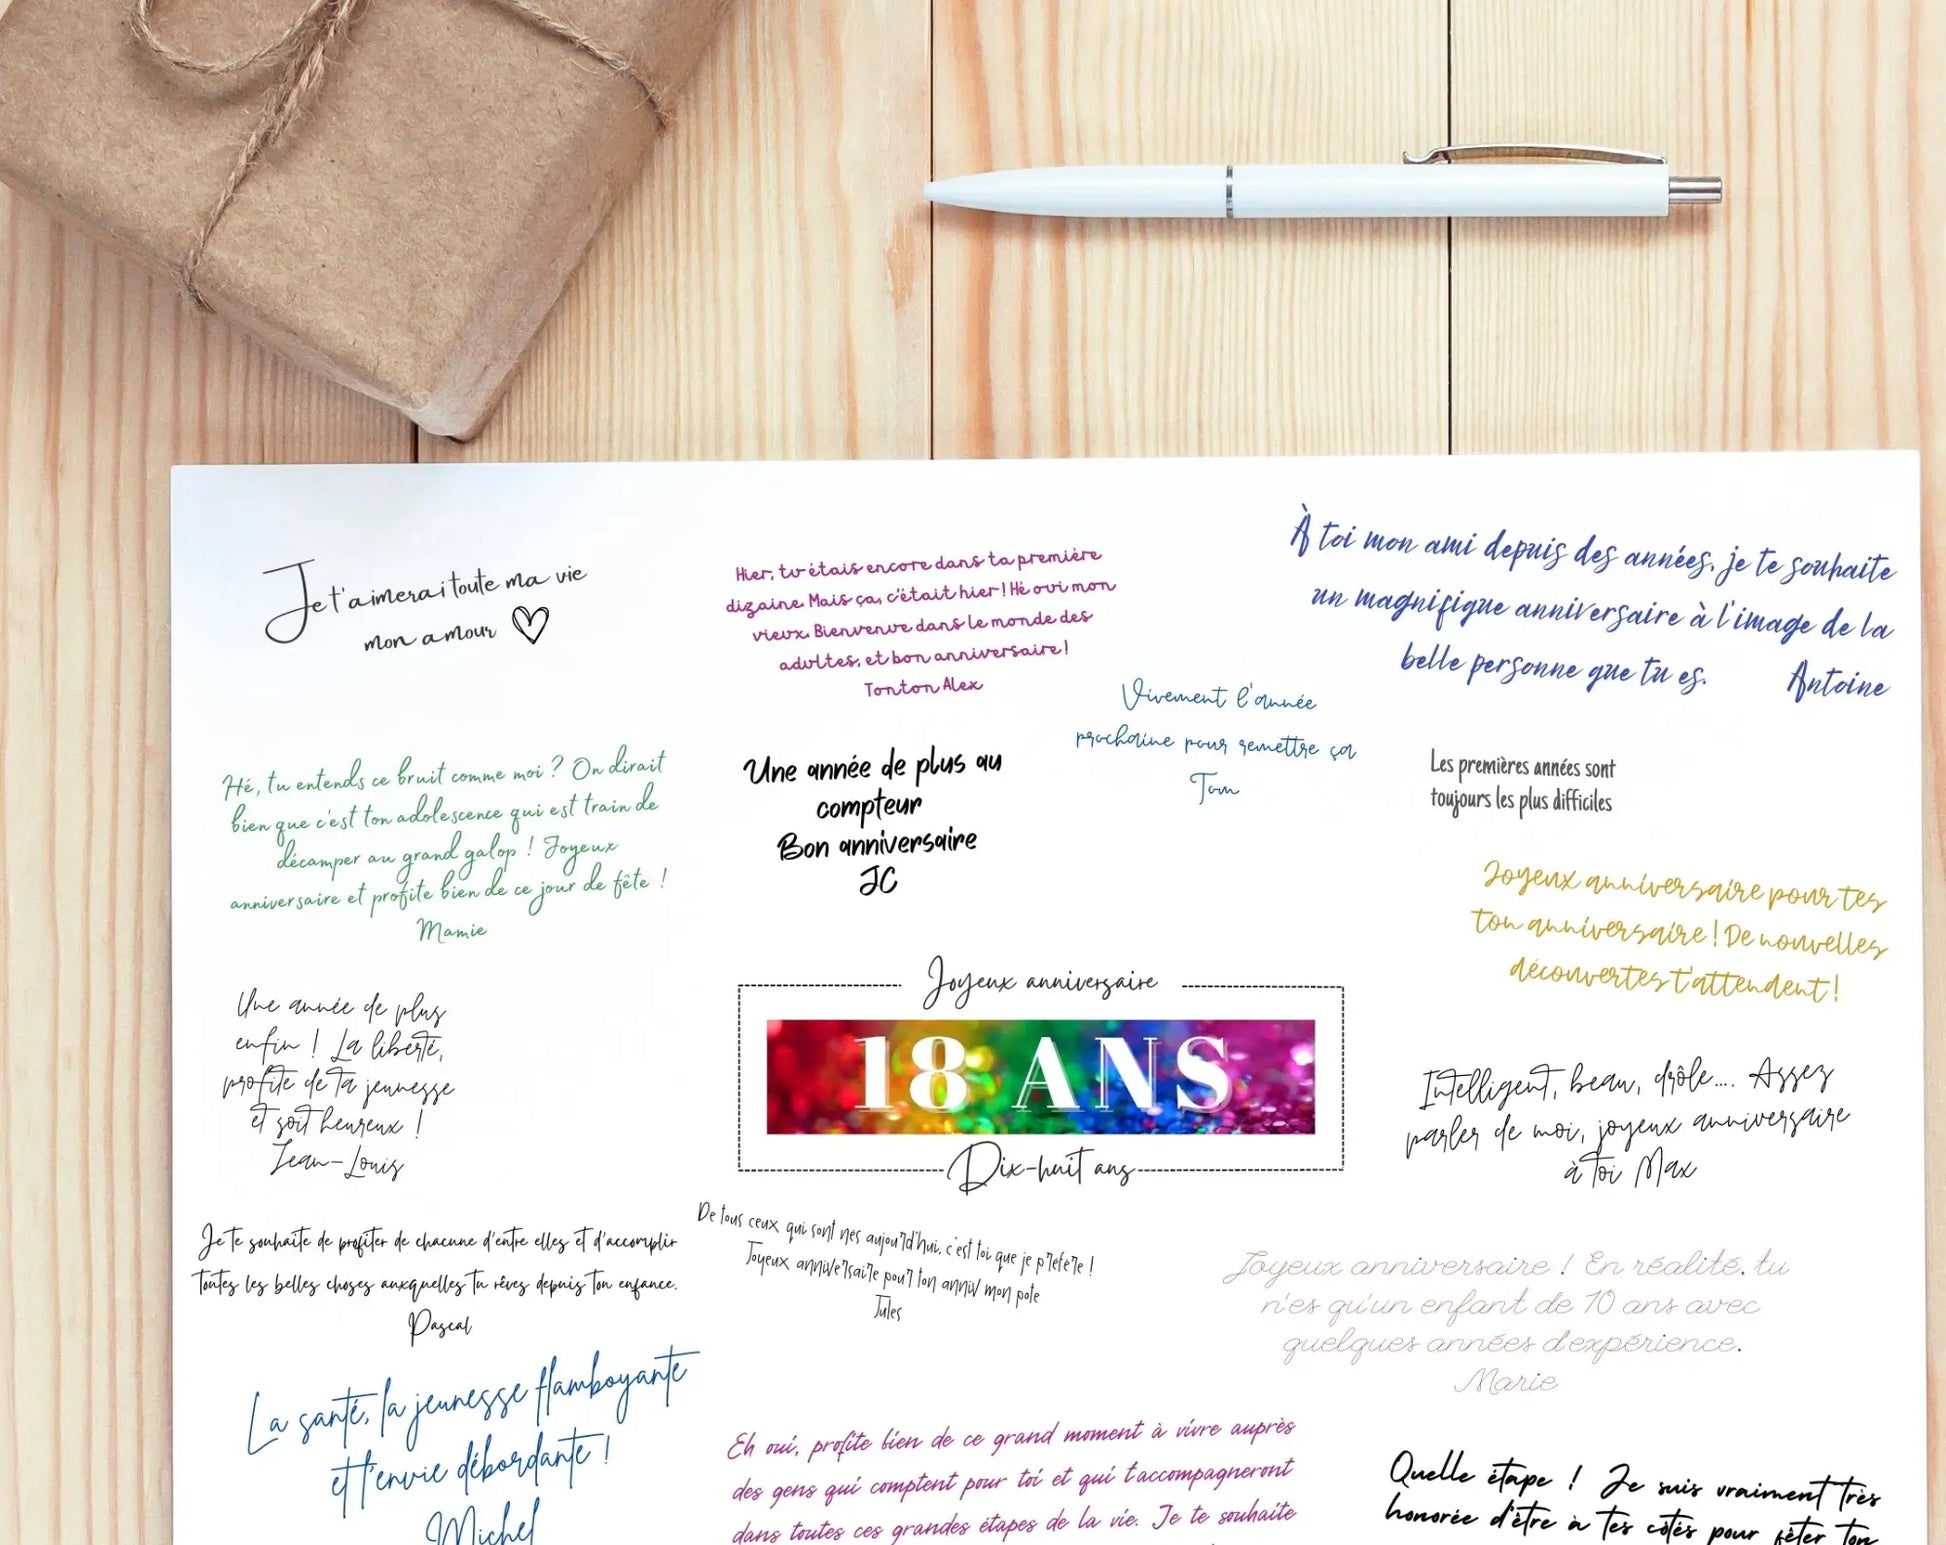 Je t'aimerai toute ma vie
mon amour
Hier, tu étais encore dans ta première
dizaine. Mais ça, c'était hier ! Hé oui mon
vieux. Bienvenue dans le monde des
adultes, et bon anniversaire !
Tonton Alex
À toi mon ami depuis des années, je te souhaite
un magnifique anniversaire à l'image de la
belle personne que tu es.
Antoine
Vivement l'année
prochaine pour remettre ça
Tom
Hé, tu entends ce bruit comme moi ? On dirait
bien que c'est ton adolescence qui est train de
décamper au grand galop ! Joyeux
anniversaire et profite bien de ce jour de fête !
Mamie
Une année de plus au
compteur
Bon anniversaire
JC
Les premières années sont
toujours les plus difficiles
Joyeux anniversaire pour tes
ton anniversaire ! De nouvelles
découvertes t'attendent !
Une année de plus
enfin ! La liberté,
profite de ta jeunesse
et soit heureux !
Jean-Louis
Joyeux anniversaire
18 ANS
Dix-huit ans
Intelligent, beau, drôle.... Assez
parler de moi, joyeux anniversaire
à toi Max
Je te souhaite de profiter de chacune d'entre elles et d'accomplir
toutes les belles choses auxquelles tu rêves depuis ton enfance.
Pascal
De tous ceux qui sont nes aujourd'hui, c'est toi que je prefere !
Joyeux anniversaire pour ton anniv mon pote
Jules
Joyeux anniversaire ! En réalité, tu
n'es qu'un enfant de 10 ans avec
quelques années d'expérience.
Marie
La santé, la jeunesse flamboyante
et l'envie débordante !
Michel
Eh oui, profite bien de ce grand moment à vivre auprès
des gens qui comptent pour toi et qui t'accompagneront
dans toutes ces grandes étapes de la vie. Je te souhaite
Quelle étape ! Je suis vraiment très
honorée d'être à tes côtés pour fêter ton